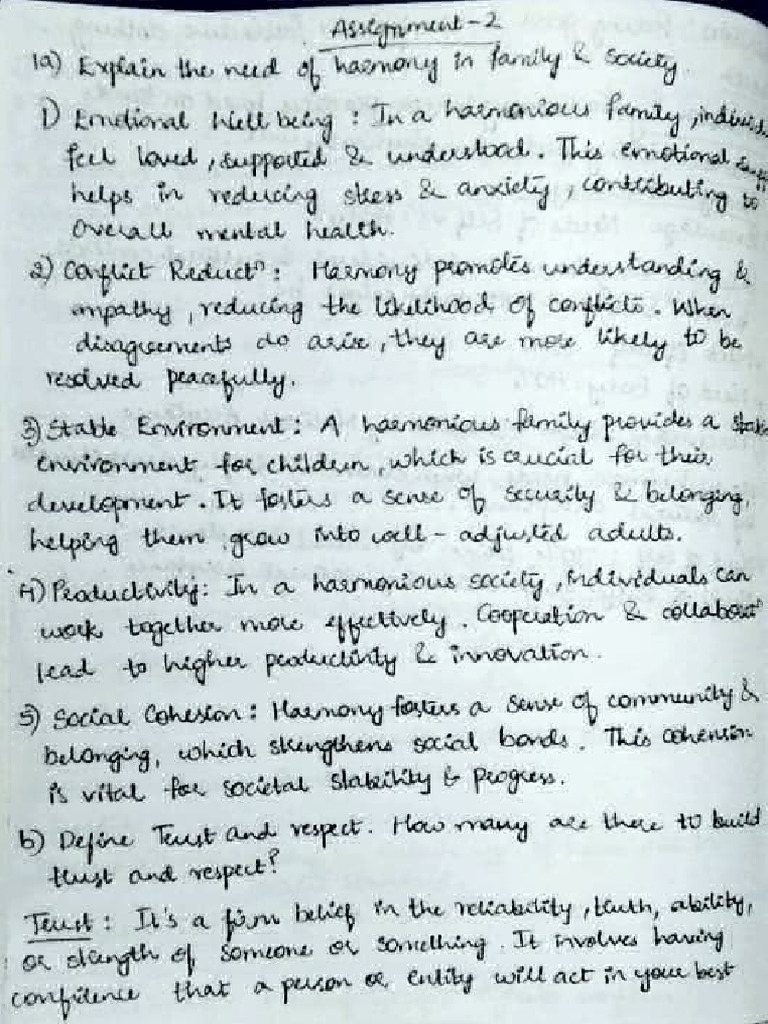 Assignment-2
1a) Explain the need of harmony in family & society.
1) Emotional Well being : In a harmonious family, individ
feel loved, supported & understood. This emotional
helps in reducing stress & anxiety, contributing to
overall mental health.
2) Conflict Reductn : Harmony promotes understanding &
empathy, reducing the likelihood of conflicts. When
disagreements do arise, they are more likely to be
resolved peacefully.
3) Stable Environment : A harmonious family provides a
environment for children, which is crucial for their
development. It fosters a sense of security & belonging,
helping them grow into well-adjusted adults.
4) Productivity: In a harmonious society, individuals can
work together more effectively. Cooperation & collaboratn
lead to higher productivity & innovation.
5) Social Cohesion : Harmony fosters a sense of community &
belonging, which strengthens social bonds. This cohension
is vital for societal stability & progress.
b) Define Trust and respect. How many are there to build
trust and respect?
Trust : It's a firm belief in the reliability, truth, ability,
or strength of someone or something. It involves having
confidence that a person or entity will act in your best